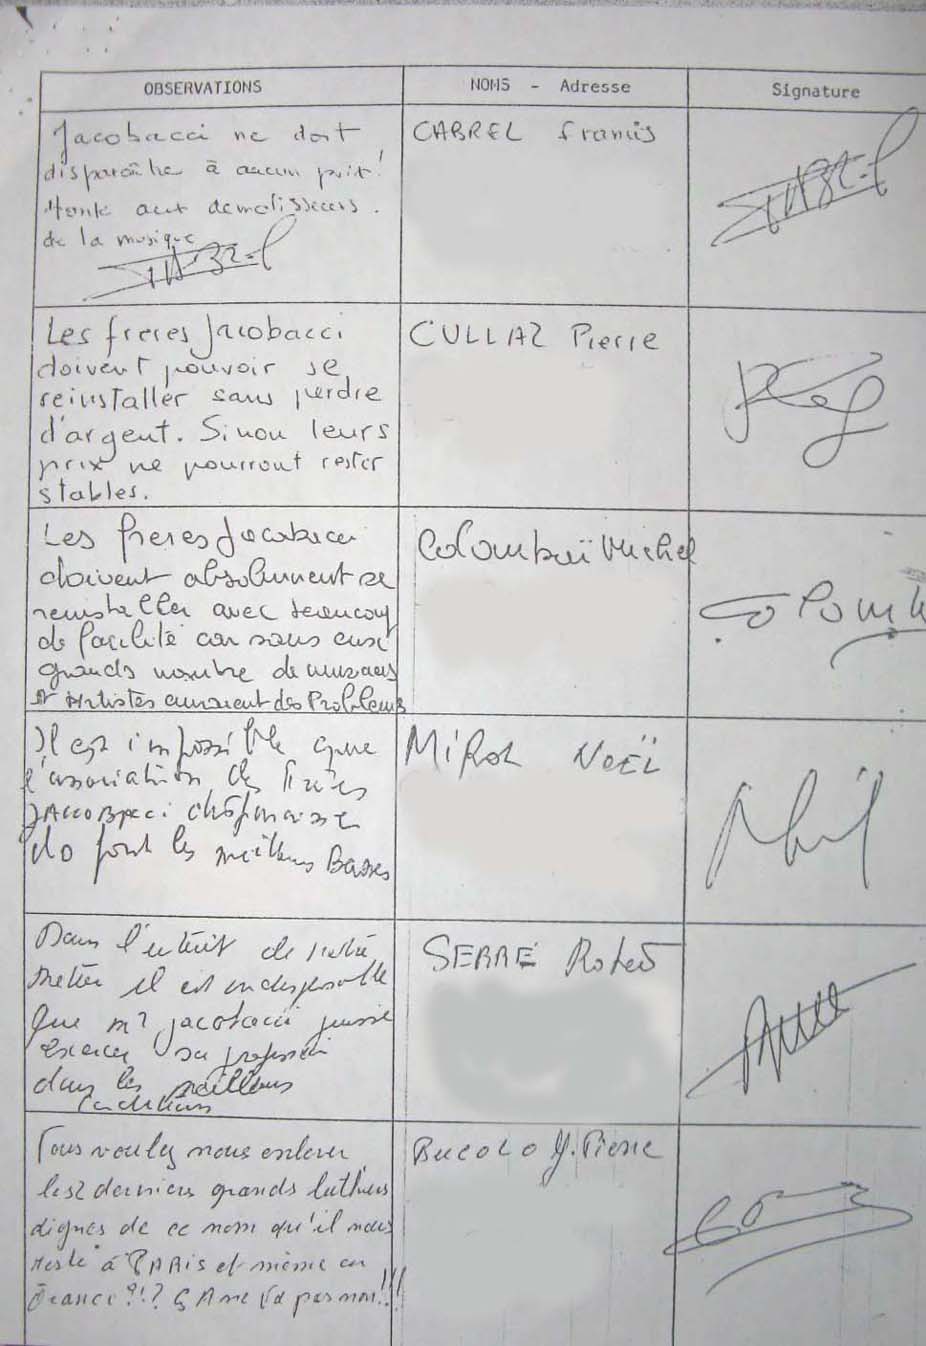 OBSERVATIONS
NOMS - Adresse
Signature
Jacobacci ne doit
disparaître à aucun prix!
Honte aux demolisseurs.
de la musique
CABREL Francis
Les freres Jacobacci
doivent pouvoir se
reinstaller sans perdre
d'argent. Sinon leurs
prix ne pourront rester
stables.
CULLAZ Pierre
Les freres Jacobacci
doivent absolument se
reinstaller avec beaucoup
de facilité car sans eux
grands nombre de musiciens
et Artistes auraient des Problemes
Michel
Il est impossible que
l'association des frères
disparaisse
font les meilleurs Basses
Noël
Dans l'intérêt de notre
metier il est indispensable
que mr jacobacci puisse
exercer sa profession
dans les meilleurs
conditions
SERRE
Vous voulez nous enlever
les 2 derniers grands luthiers
dignes de ce nom qu'il nous
reste à PARIS et même en
France?!? ÇA ne va pas non!!!
BUCOLO J. Pierre